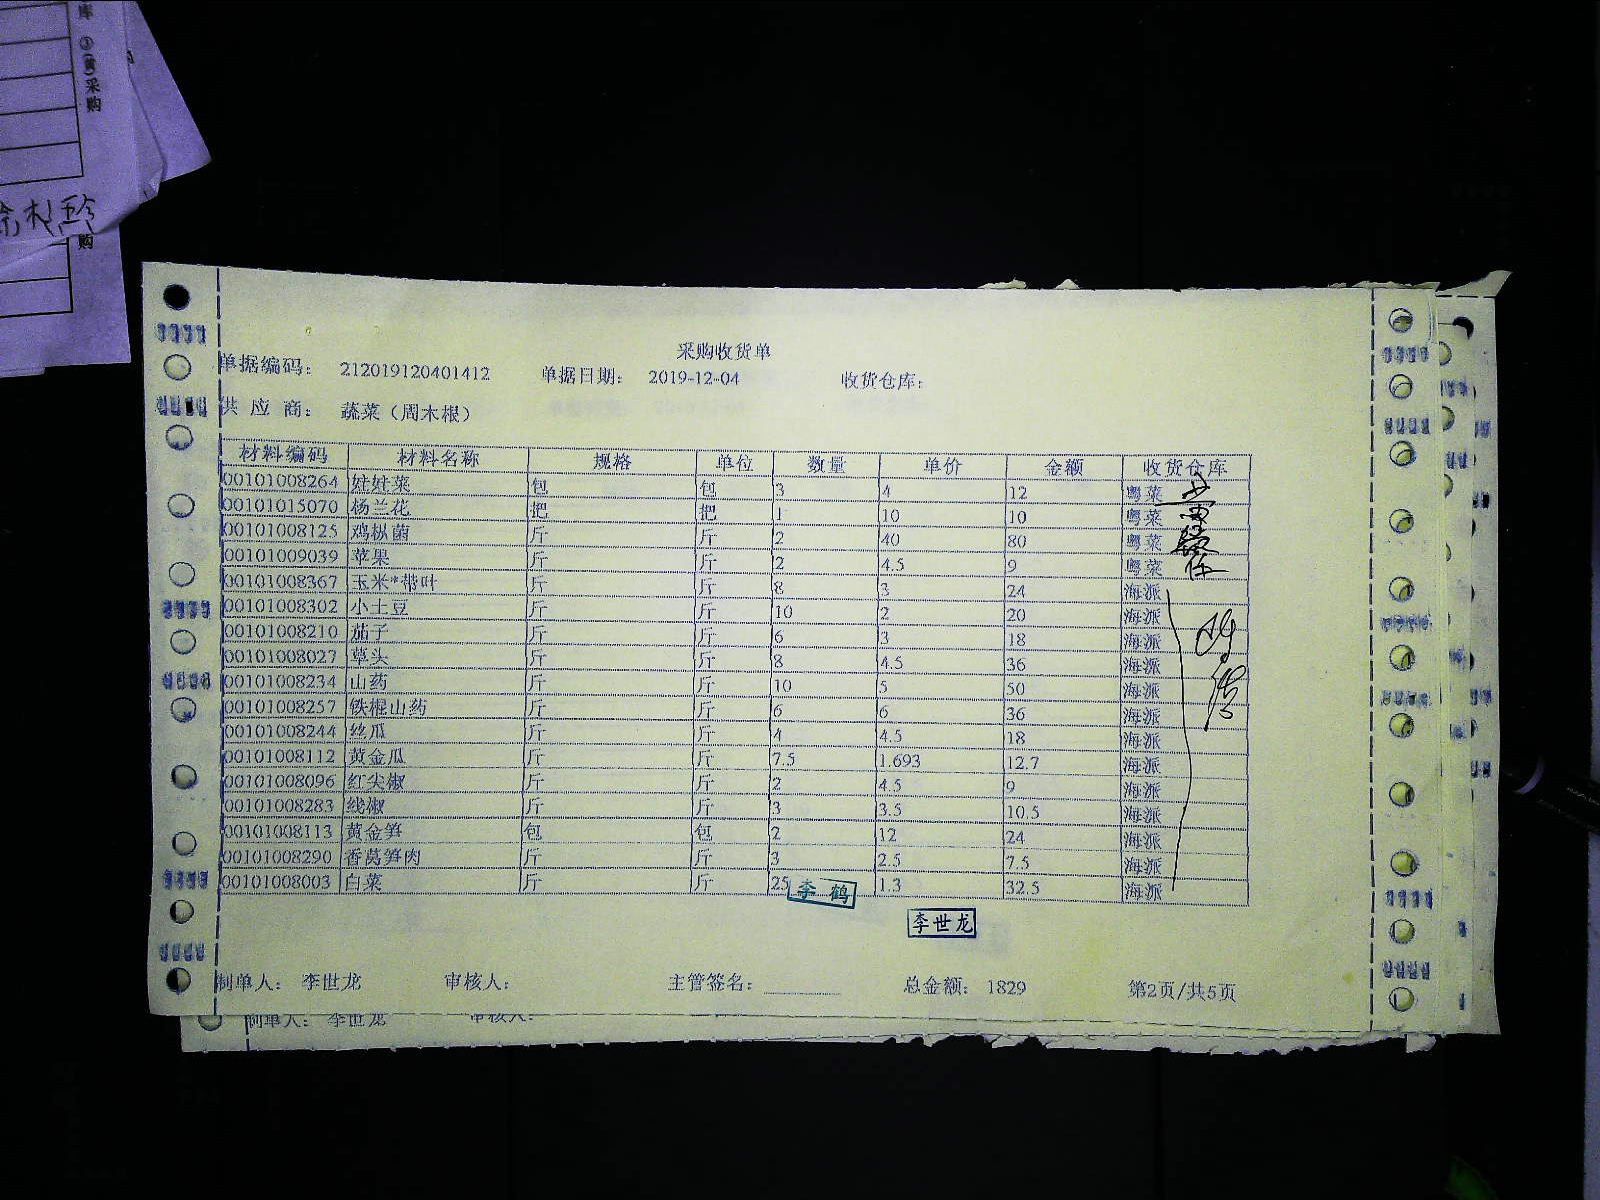 库 ③(黄)采购
购
采购收货单
单据编码： 212019120401412 单据日期： 2019-12-04 收货仓库：
供 应 商： 蔬菜（周木根）
材料编码 材料名称 规格 单位 数量 单价 金额 收货仓库
00101008264 娃娃菜 包 包 3 4 12 粤菜
00101015070 杨兰花 把 把 1 10 10 粤菜
00101008125 鸡枞菌 斤 斤 2 40 80 粤菜
00101009039 苹果 斤 斤 2 4.5 9 粤菜
00101008367 玉米*带叶 斤 斤 8 3 24 海派
00101008302 小土豆 斤 斤 10 2 20 海派
00101008210 茄子 斤 斤 6 3 18 海派
00101008027 草头 斤 斤 8 4.5 36 海派
00101008234 山药 斤 斤 10 5 50 海派
00101008257 铁棍山药 斤 斤 6 6 36 海派
00101008244 丝瓜 斤 斤 4 4.5 18 海派
00101008112 黄金瓜 斤 斤 7.5 1.693 12.7 海派
00101008096 红尖椒 斤 斤 2 4.5 9 海派
00101008283 线椒 斤 斤 3 3.5 10.5 海派
00101008113 黄金笋 包 包 2 12 24 海派
00101008290 香莴笋肉 斤 斤 3 2.5 7.5 海派
00101008003 白菜 斤 斤 25 1.3 32.5 海派
李 鹤
李世龙
制单人： 李世龙 审核人： 主管签名： 总金额： 1829 第2页/共5页
制单人： 李世龙 审核人：